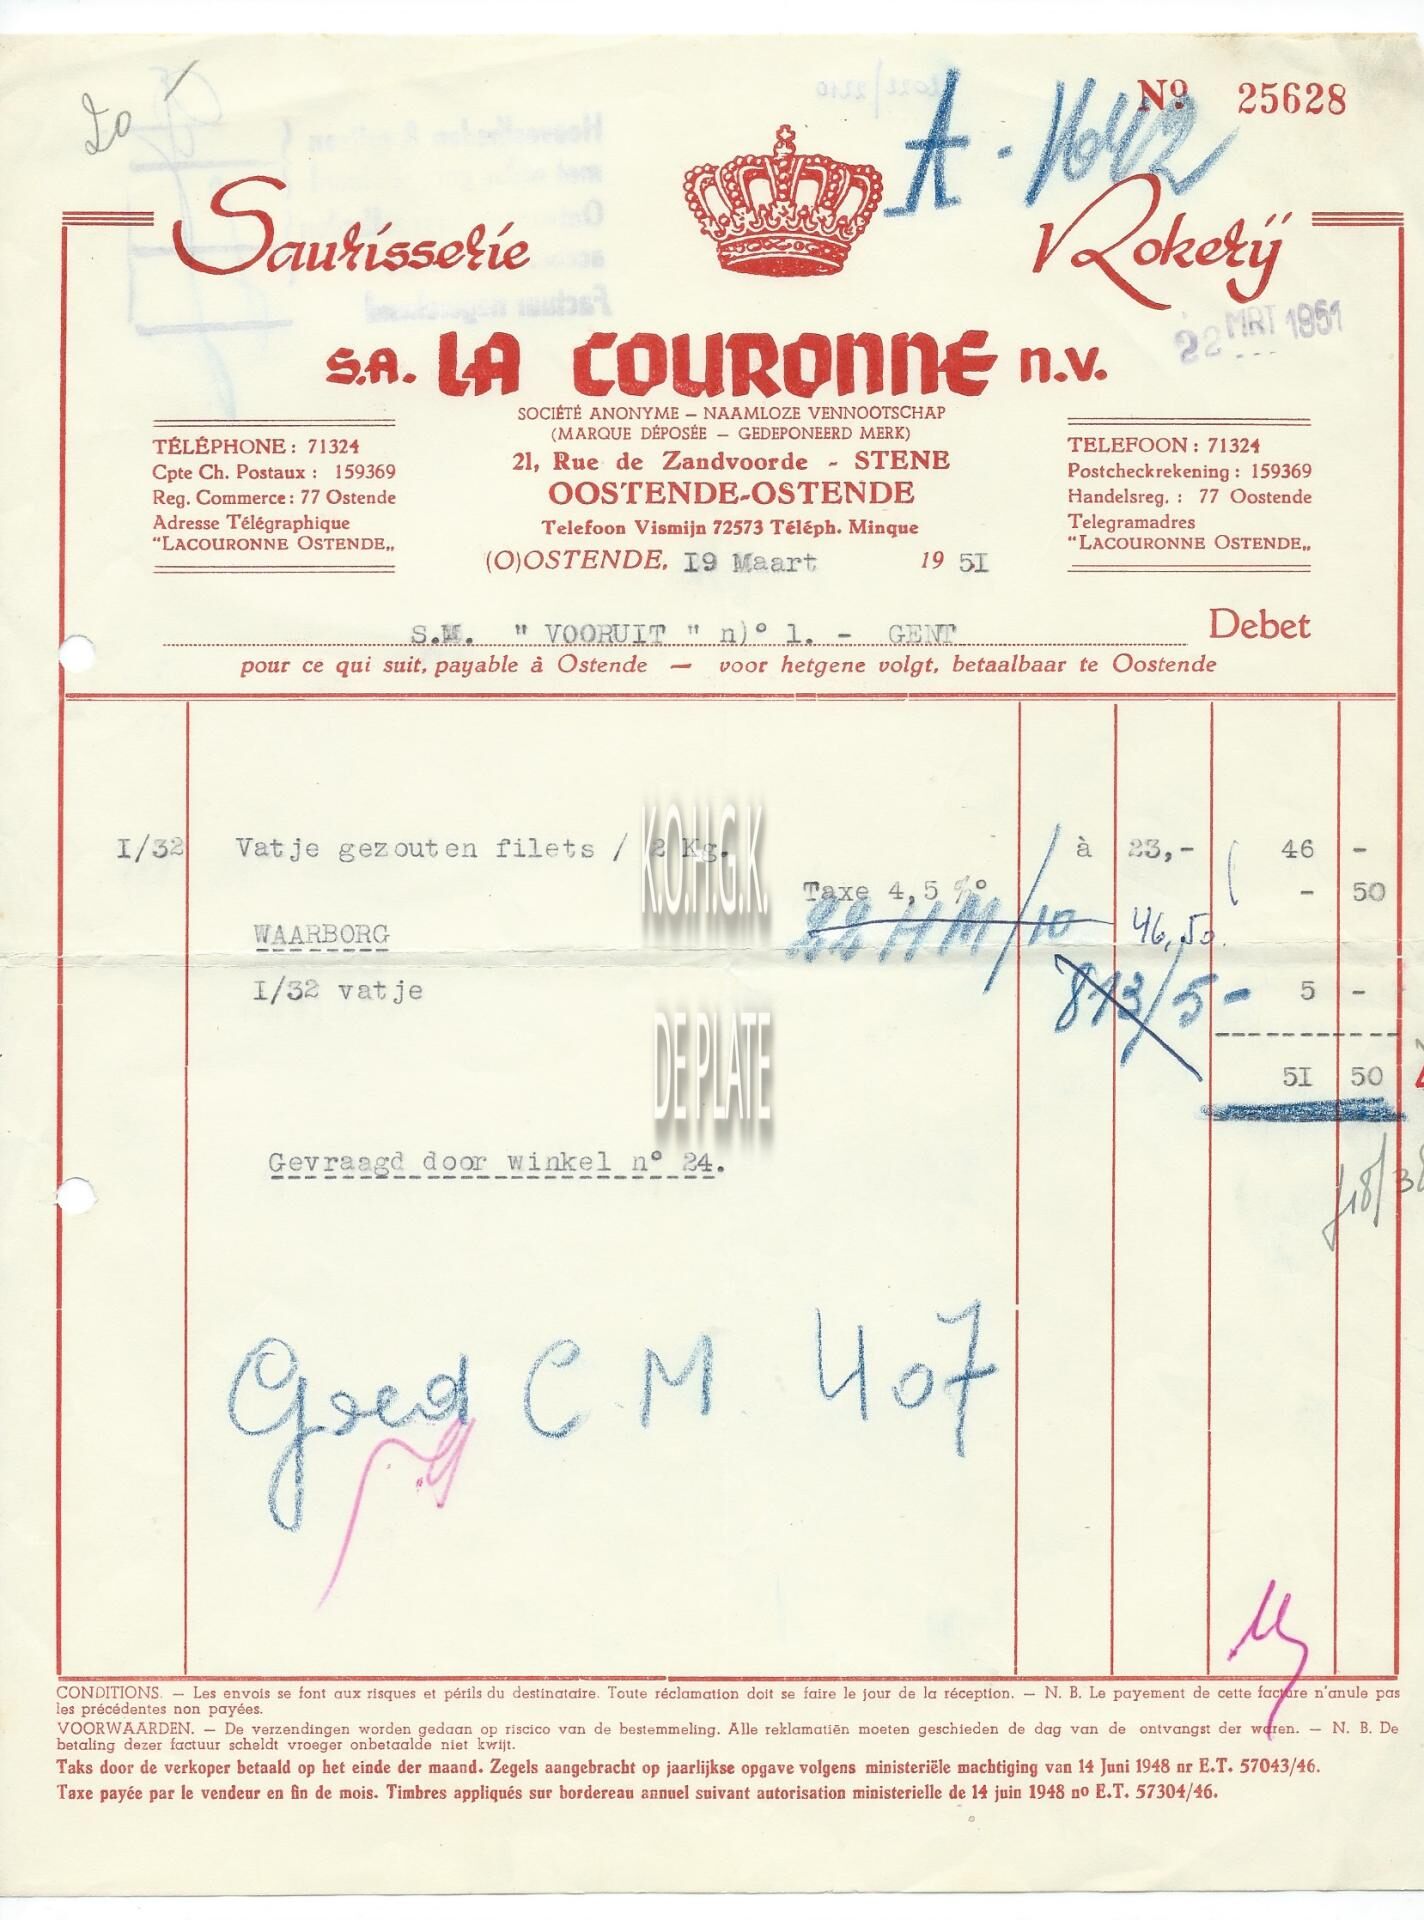 20
Nº 25628
A - 1642
Saurisserie
Rokerij
22 MRT 1951
S.A. LA COURONNE n.v.
SOCIÉTÉ ANONYME – NAAMLOZE VENNOOTSCHAP
(MARQUE DÉPOSÉE – GEDEPONEERD MERK)
21, Rue de Zandvoorde - STENE
OOSTENDE-OSTENDE
Telefoon Vismijn 72573 Téléph. Minque
TÉLÉPHONE : 71324
Cpte Ch. Postaux : 159369
Reg. Commerce : 77 Ostende
Adresse Télégraphique
"LACOURONNE OSTENDE„
TELEFOON : 71324
Postcheckrekening : 159369
Handelsreg. : 77 Oostende
Telegramadres
"LACOURONNE OSTENDE„
(O)OSTENDE, I9 Maart 19 5I
S.M. " VOORUIT " n)° 1. - GENT
Debet
pour ce qui suit, payable à Ostende — voor hetgene volgt, betaalbaar te Oostende
I/32 Vatje gezouten filets / 2 Kg. à 23,- 46 -
Taxe 4,5 %° - 50
WAARBORG
22 HM/10 46,50
I/32 vatje 5 -
813/5 -
5I 50
K.O.H.G.K.
DE PLATE
Gevraagd door winkel n° 24.
Goed C M 407
CONDITIONS. — Les envois se font aux risques et périls du destinataire. Toute réclamation doit se faire le jour de la réception. — N. B. Le payement de cette facture n'anule pas
les précédentes non payées.
VOORWAARDEN. — De verzendingen worden gedaan op riscico van de bestemmeling. Alle reklamatiën moeten geschieden de dag van de ontvangst der waren. — N. B. De
betaling dezer factuur scheldt vroeger onbetaalde niet kwijt.
Taks door de verkoper betaald op het einde der maand. Zegels aangebracht op jaarlijkse opgave volgens ministeriële machtiging van 14 Juni 1948 nr E.T. 57043/46.
Taxe payée par le vendeur en fin de mois. Timbres appliqués sur bordereau annuel suivant autorisation ministerielle de 14 juin 1948 no E.T. 57304/46.